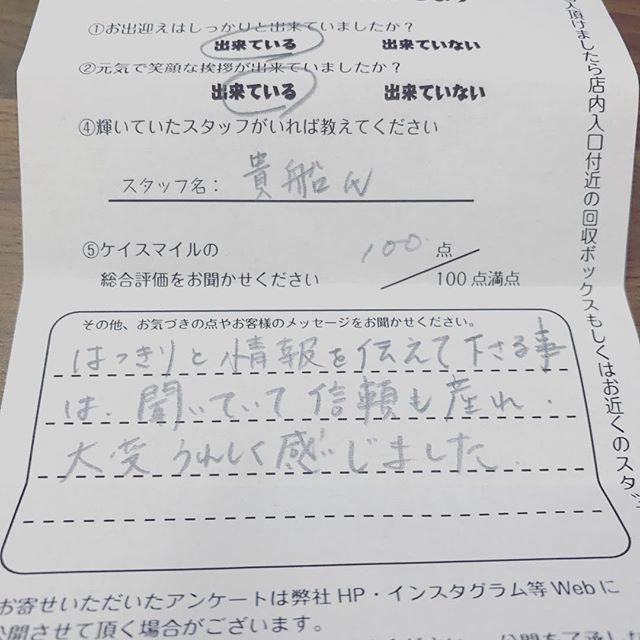 ①お出迎えはしっかりと出来ていましたか？
出来ている 出来ていない
②元気で笑顔な挨拶が出来ていましたか？
出来ている 出来ていない
④輝いていたスタッフがいれば教えてください
スタッフ名： 貴船
⑤ケイスマイルの 100 点
総合評価をお聞かせください 100点満点
その他、お気づきの点やお客様のメッセージをお聞かせください。
はっきりと情報を伝えて下さる事
は、聞いていて信頼も産れ、
大変うれしく感じました。
お寄せいただいたアンケートは弊社HP・インスタグラム等Webに
公開させて頂く場合がございます。
入頂けましたら店内入口付近の回収ボックスもしくはお近くのスタッ